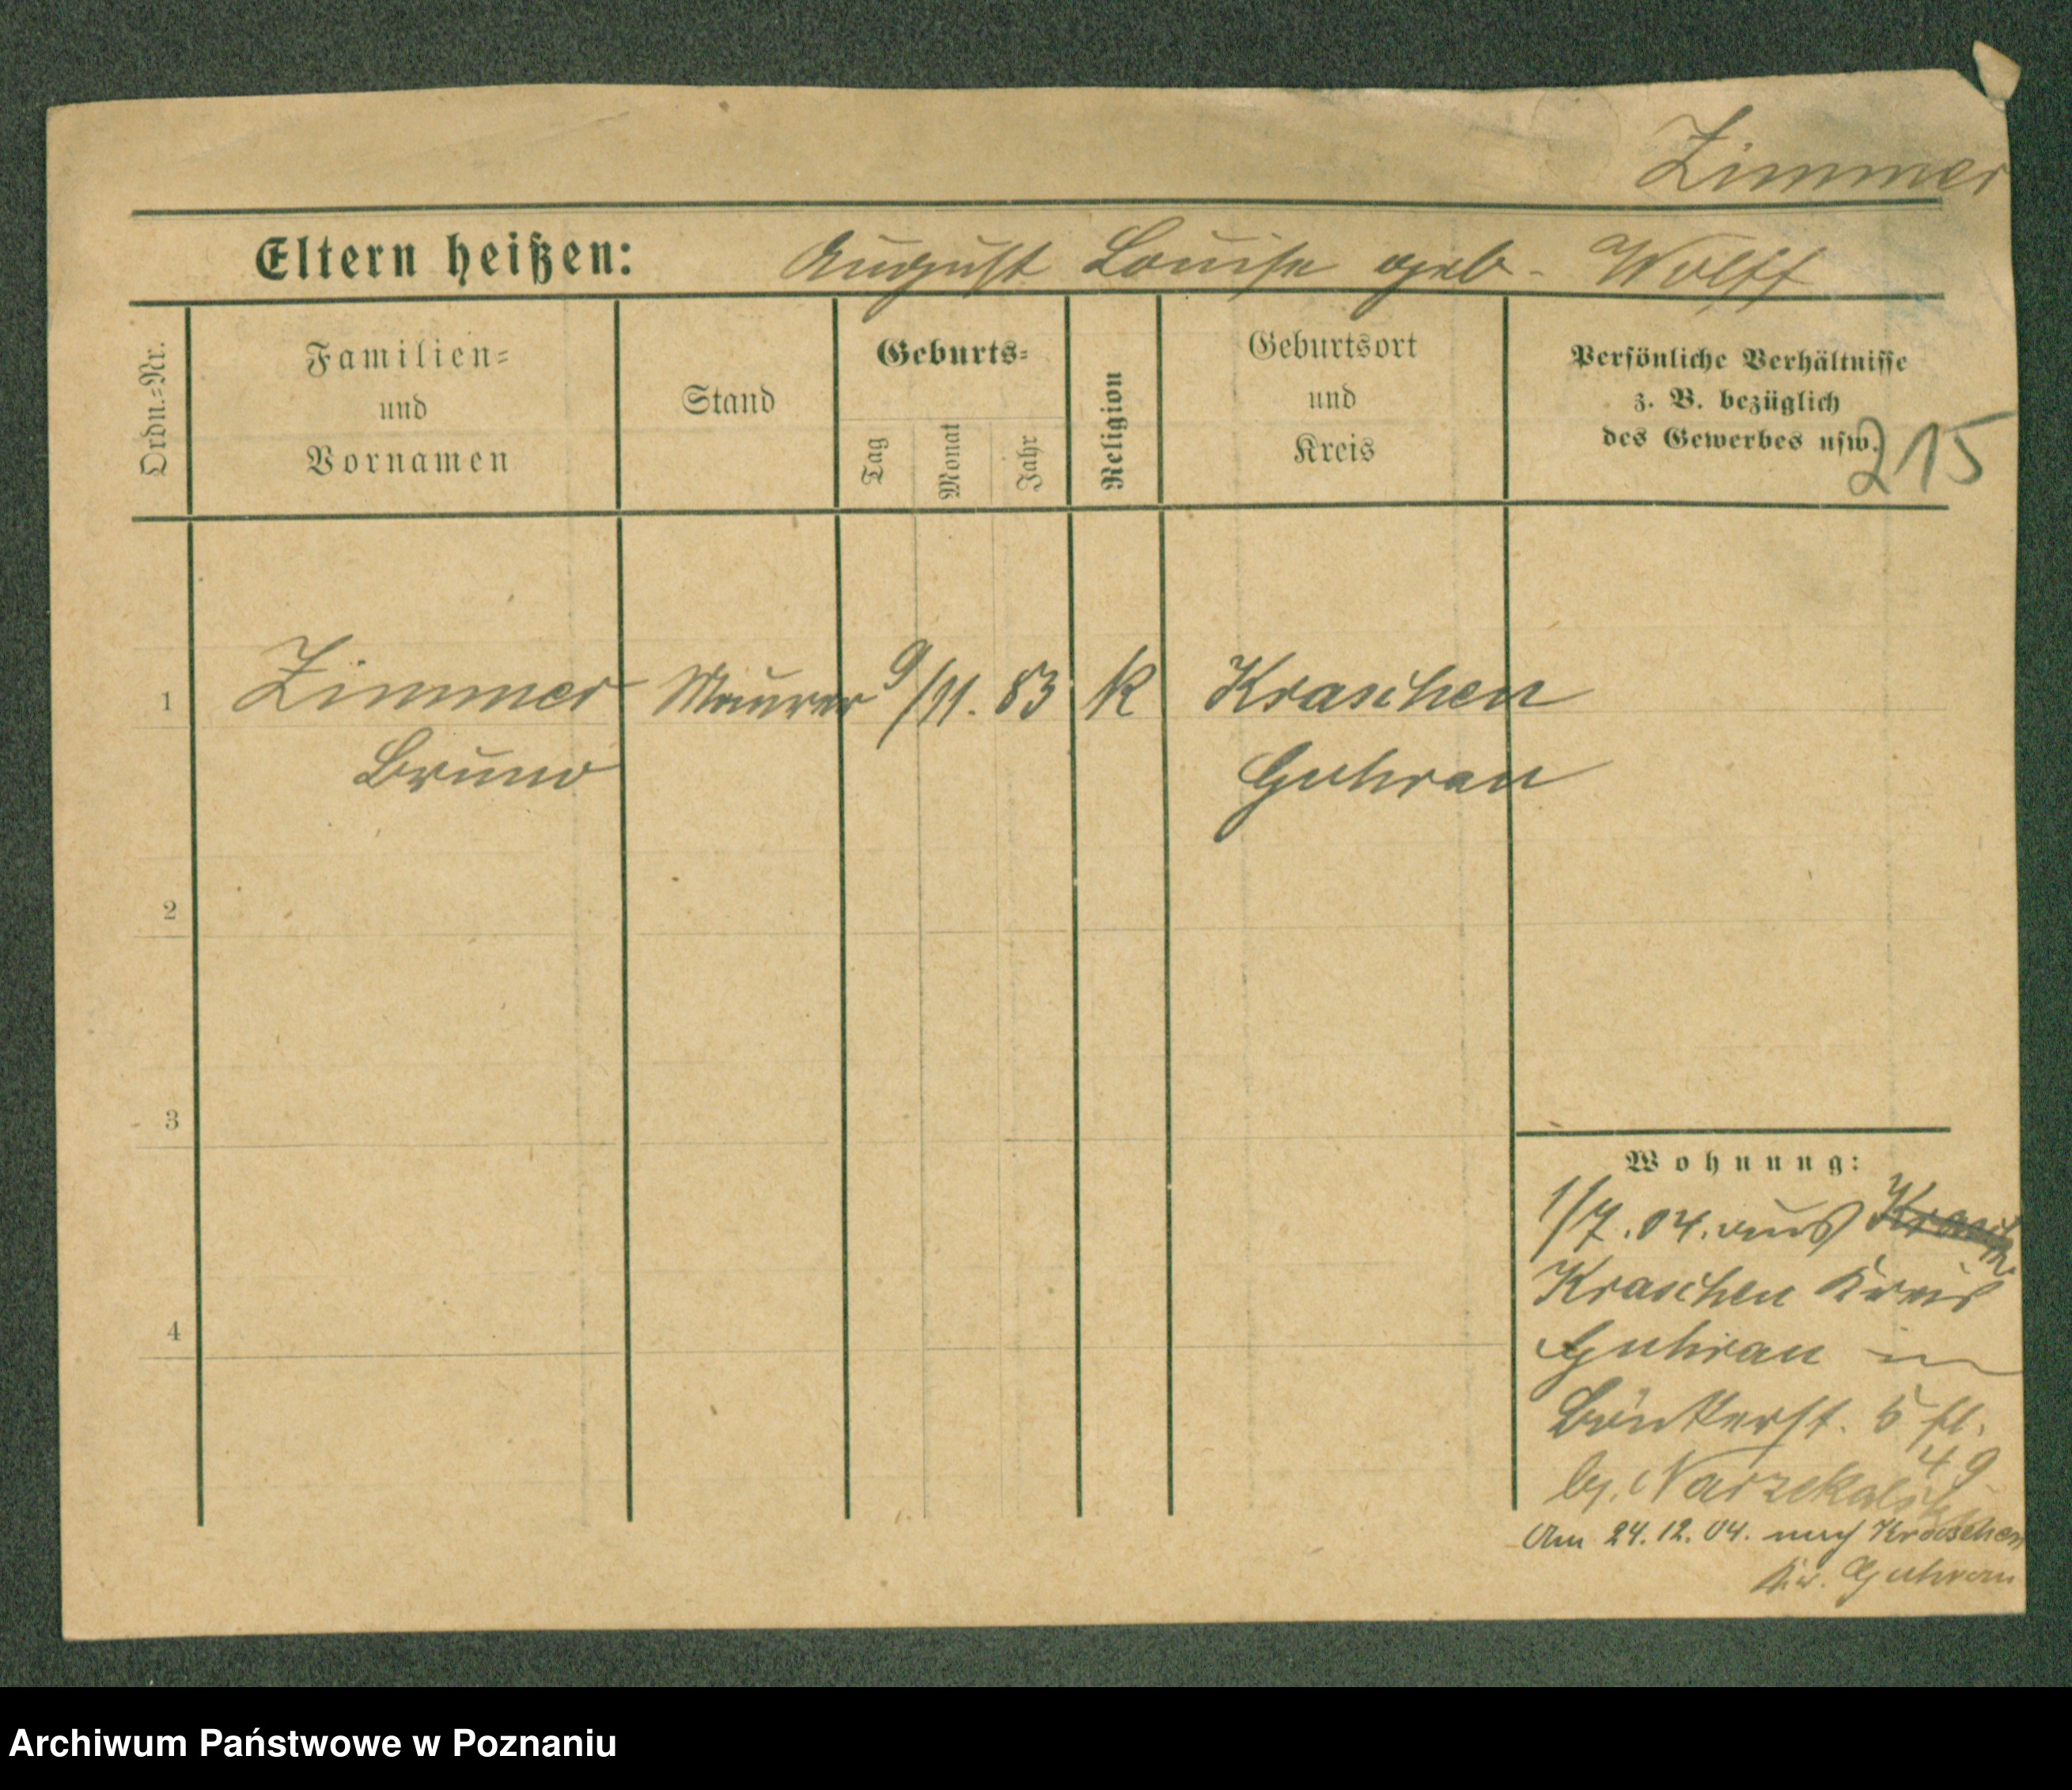 Zimmer
Eltern heißen: August Louise geb. Wolff
Ordn.=Nr.
Familien=
und
Vornamen
Stand
Geburts=
Tag
Monat
Jahr
Religion
Geburtsort
und
Kreis
Persönliche Verhältnisse
z. B. bezüglich
des Gewerbes usw.
215
1 Zimmer Maurer 9/11. 83 k Kraschen
Bruno Guhrau
2
3
4
Wohnung:
1/7.04. aus
Kraschen Kreis
Guhrau in
5 fl.
49
by.
Am 24.12.04. nach Kraschen
Kr. Guhrau
Archiwum Państwowe w Poznaniu